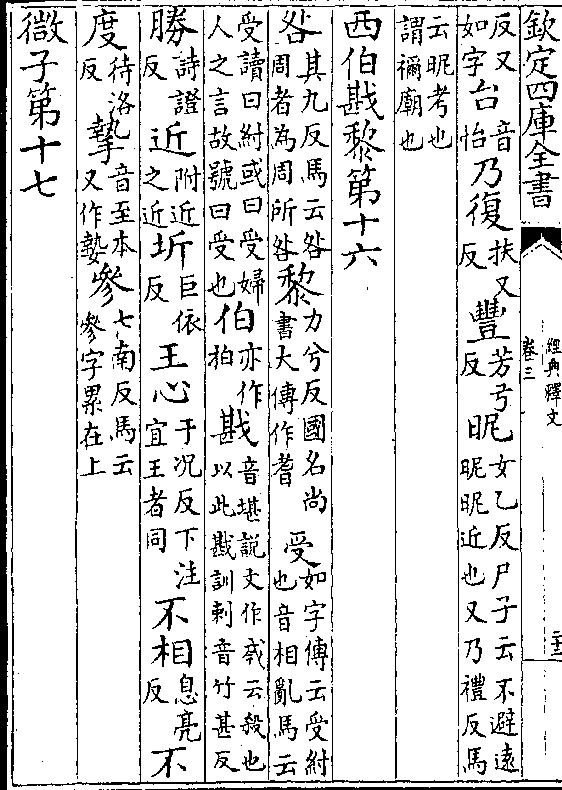 欽定四庫全書
經典釋文
卷三
反又如字台音怡乃復扶又反豐芳弓反昵女乙反尸子云不避遠昵昵近也又乃禮反馬
云昵考也謂禰廟也
西伯戡黎第十六
咎其九反馬云咎周者為周所咎黎力兮反國名尚書大傳作耆受如字傳云受紂也音相亂馬云
受讀曰紂或曰受婦人之言故號曰受也伯亦作柏戡音堪説文作𢦟云殺也以此戡訓刺音竹甚反
勝詩證反近附近之近圻巨依反王心于况反下注宜王者同不相息亮反不
度待洛反摯音至本又作𡠗參七南反馬云參字累在上
微子第十七